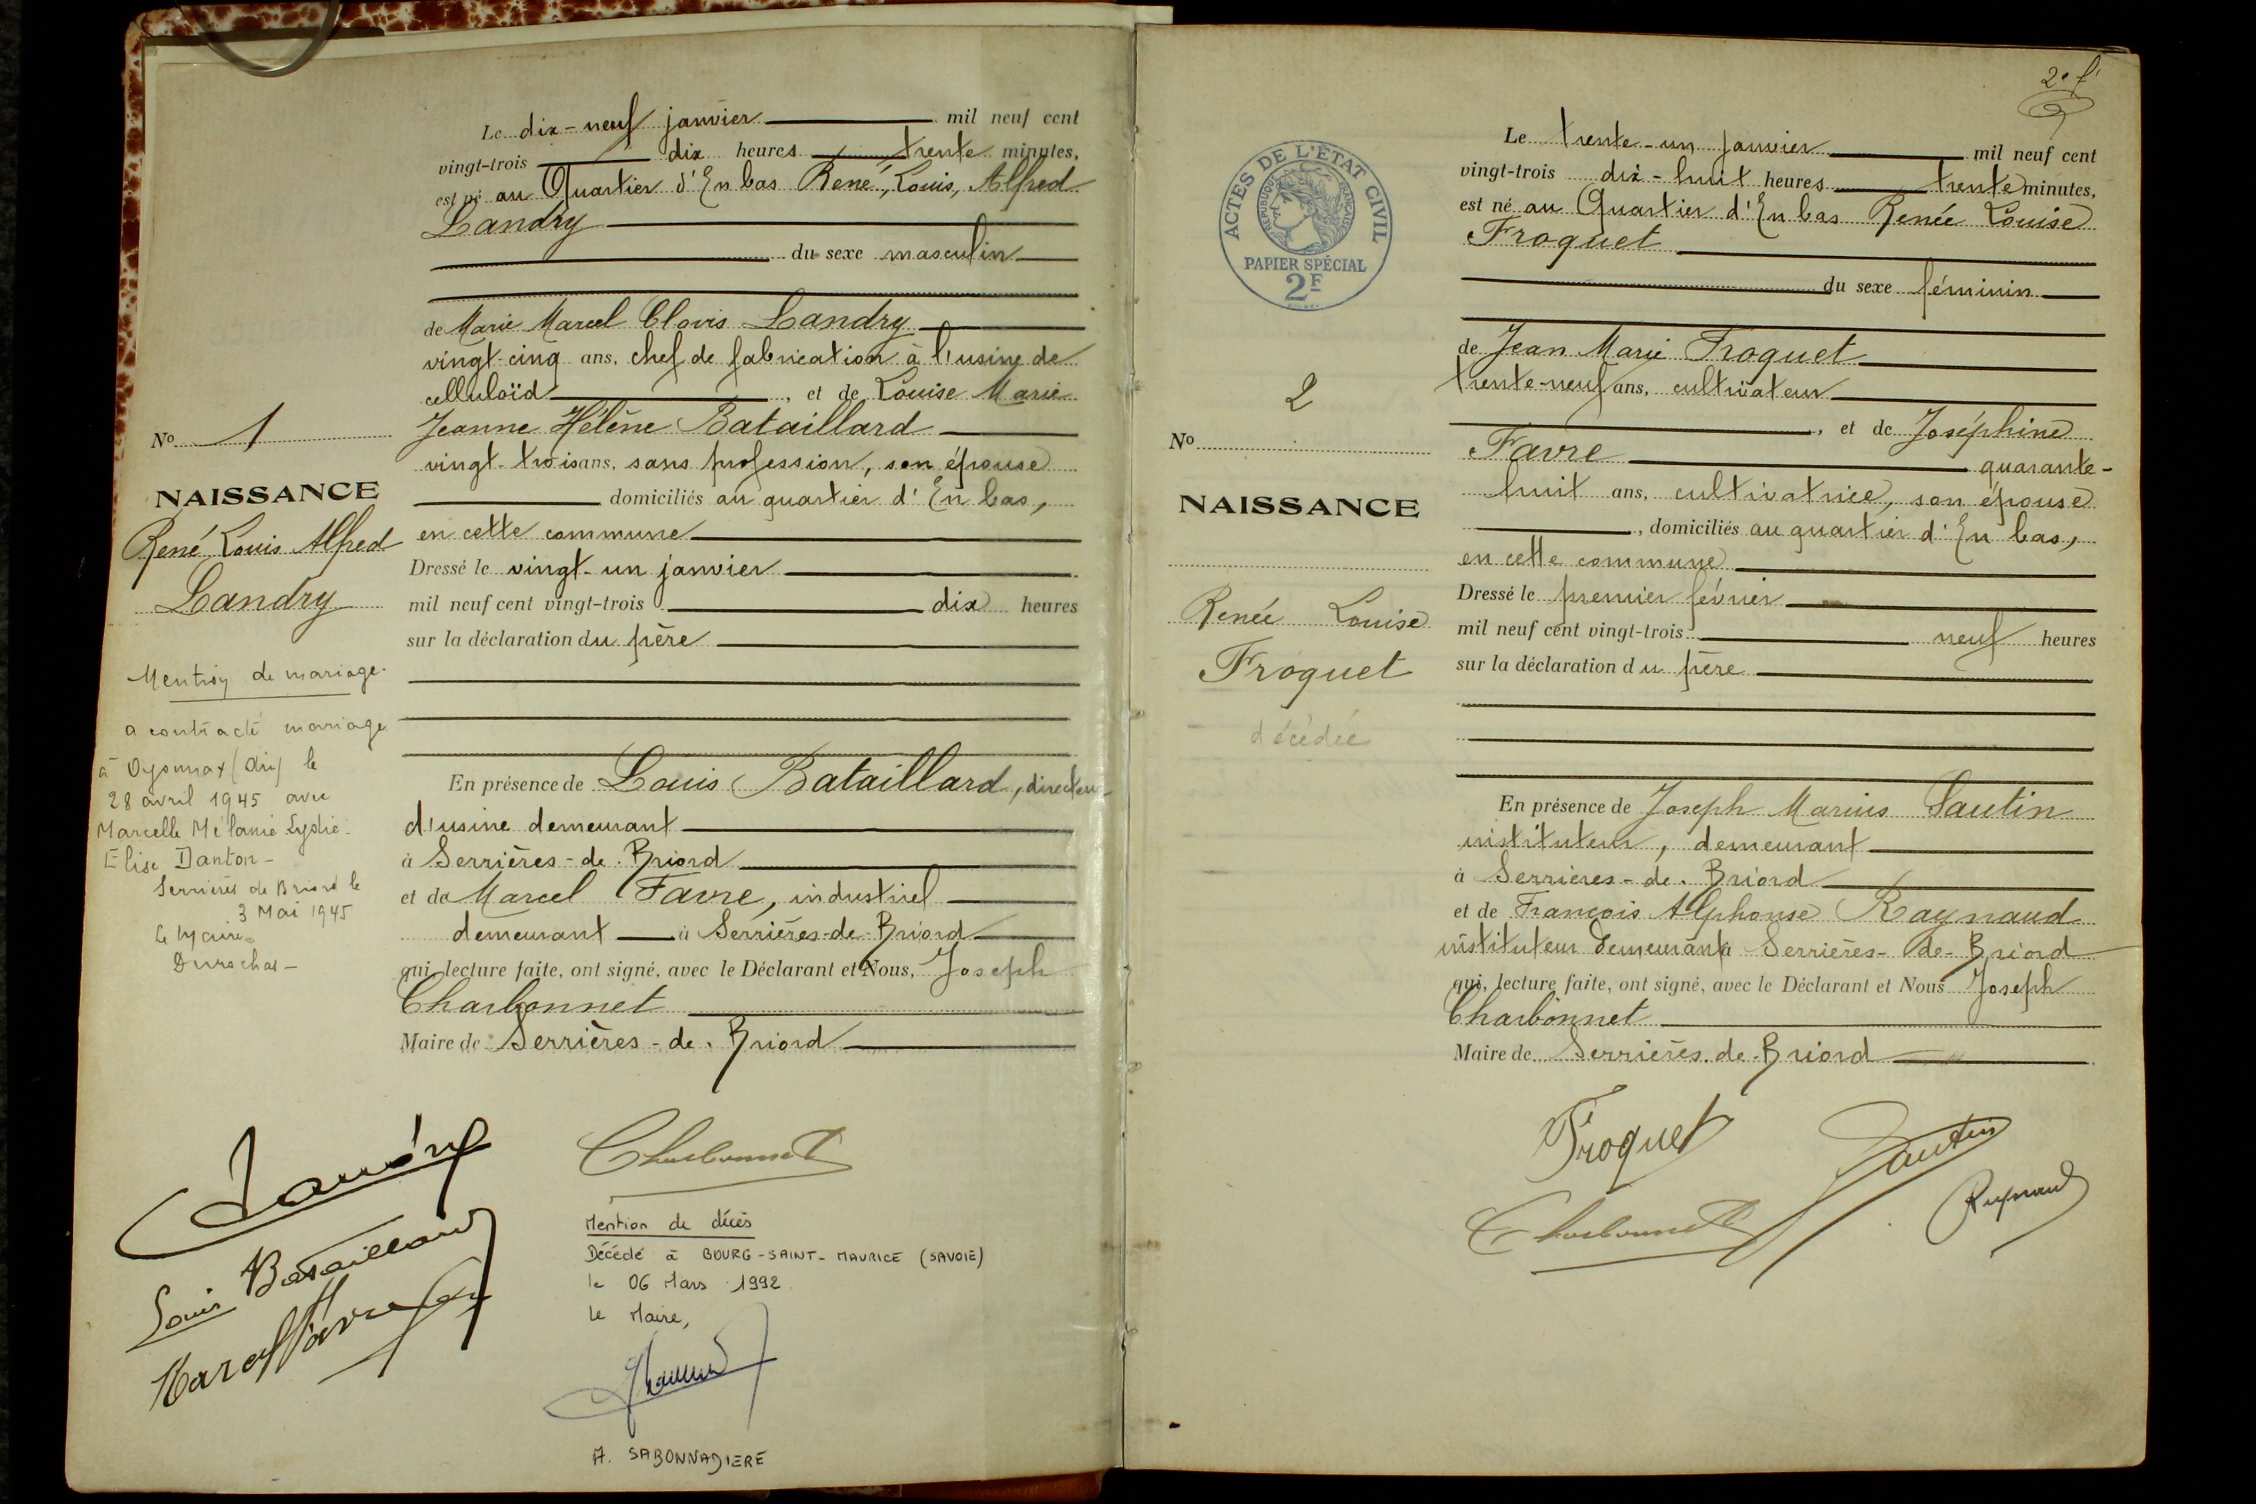 Le dix-neuf janvier mil neuf cent
vingt-trois dix heures trente minutes,
est né au Quartier d'En bas René, Louis, Alfred
Landry
du sexe masculin
de Marie Marcel Clovis Landry
vingt-cinq ans, chef de fabrication à l'usine de
celluloïd, et de Louise Marie
Jeanne Hélène Bataillard
vingt-trois ans, sans profession, son épouse
domiciliés au quartier d'En bas,
en cette commune
Dressé le vingt-un janvier
mil neuf cent vingt-trois dix heures
sur la déclaration du père
En présence de Louis Bataillard, directeur
d'usine demeurant
à Serrières-de-Briord
et de Marcel Favre, industriel
demeurant à Serrières-de-Briord
qui, lecture faite, ont signé, avec le Déclarant et Nous, Joseph
Charbonnet
Maire de Serrières-de-Briord
No 1
NAISSANCE
René Louis Alfred
Landry
Mention de mariage
a contracté mariage
à Oyonnax (Ain) le
28 avril 1945 avec
Marcelle Mélanie Lydie
Elise Danton-
Serrières de Briord le
3 Mai 1945
Le Maire
Landry
Charbonnet
Louis Bataillard
Marcel Favre
Mention de décès
Décédé à BOURG-SAINT-MAURICE (SAVOIE)
le 06 Mars 1992
Le Maire,
A. SABONNADIERE
ACTES DE L'ÉTAT CIVIL
RÉPUBLIQUE FRANÇAISE
PAPIER SPÉCIAL
2F
2
No
NAISSANCE
Renée Louise
Froquet
décédée
2e f
Le trente-un janvier mil neuf cent
vingt-trois dix-huit heures trente minutes,
est né au Quartier d'En bas Renée Louise
Froquet
du sexe féminin
de Jean Marie Froquet
trente-neuf ans, cultivateur
, et de Joséphine
Favre quarante-
huit ans, cultivatrice, son épouse
, domiciliés au quartier d'En bas,
en cette commune
Dressé le premier février
mil neuf cent vingt-trois neuf heures
sur la déclaration du père
En présence de Joseph Marius Sautin
instituteur, demeurant
à Serrières-de-Briord
et de François Alphonse Raynaud
instituteur demeurant à Serrières-de-Briord
qui, lecture faite, ont signé, avec le Déclarant et Nous Joseph
Charbonnet
Maire de Serrières-de-Briord
Froquet
Sautin
Charbonnet
Raynaud